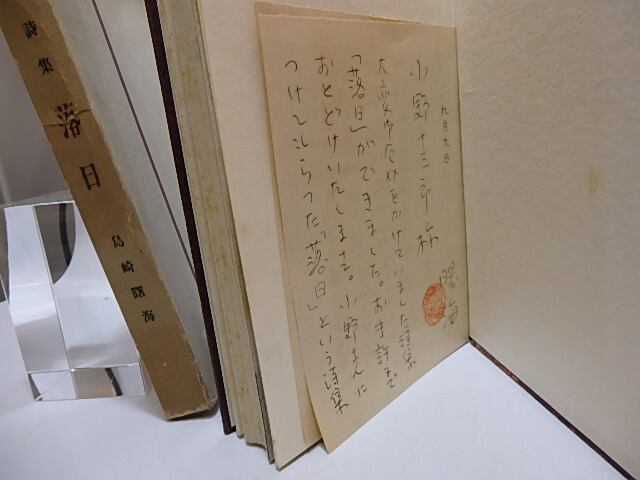 詩集 落日 島崎曙海
九月九日
曙海
小野十三郎様
大変御厄介をかけていました詩集
「落日」ができました。お手許まで
おとどけいたします。小野さんに
つけてもらった「落日」という詩集